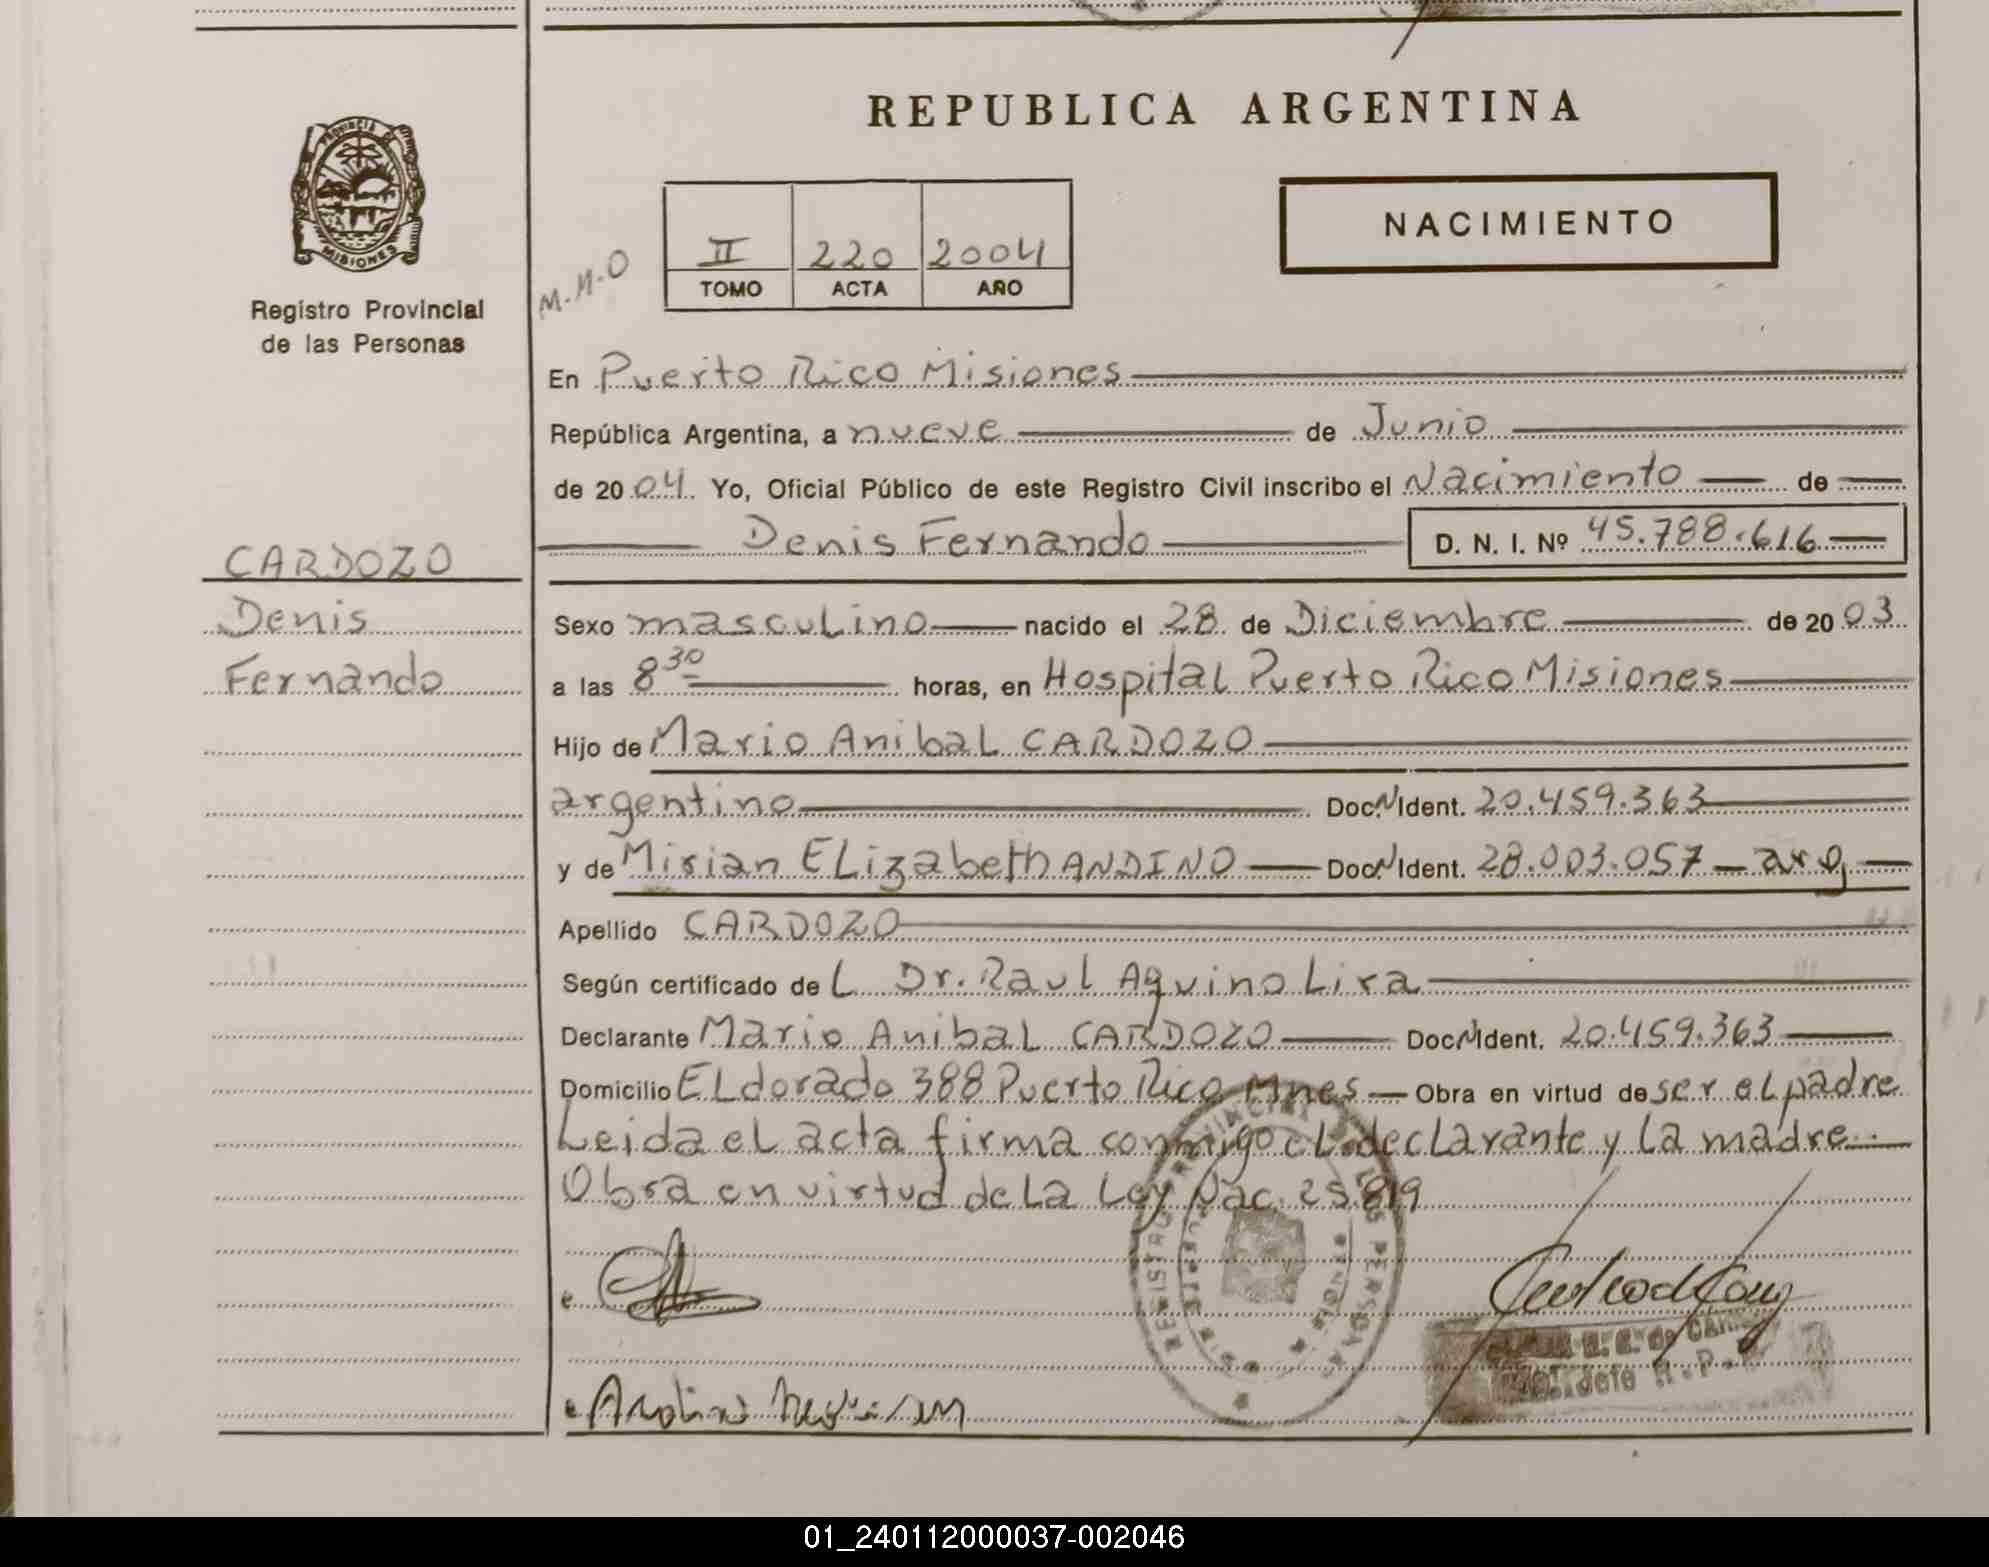 REPUBLICA ARGENTINA
PROVINCIA DE MISIONES
Registro Provincial
de las Personas
M.M.O
II 220 2004
TOMO ACTA AÑO
NACIMIENTO
En Puerto Rico Misiones
República Argentina, a nueve de Junio
de 2004. Yo, Oficial Público de este Registro Civil inscribo el Nacimiento de
Denis Fernando D. N. I. Nº 45.788.616
CARDOZO
Denis
Fernando
Sexo masculino nacido el 28 de Diciembre de 2003
a las 8 30 horas, en Hospital Puerto Rico Misiones
Hijo de Mario Anibal CARDOZO
argentino Doc. N Ident. 20.459.363
y de Mirian Elizabeth ANDINO Doc. N Ident. 28.003.057 - arg
Apellido CARDOZO
Según certificado del Dr. Raul Aquino Lira
Declarante Mario Anibal CARDOZO Doc. N Ident. 20.459.363
Domicilio Eldorado 388 Puerto Rico Mnes - Obra en virtud de ser el padre
Leida el acta firma conmigo el declarante y la madre
Obra en virtud de la Ley Nac. 25.819
01_240112000037-002046